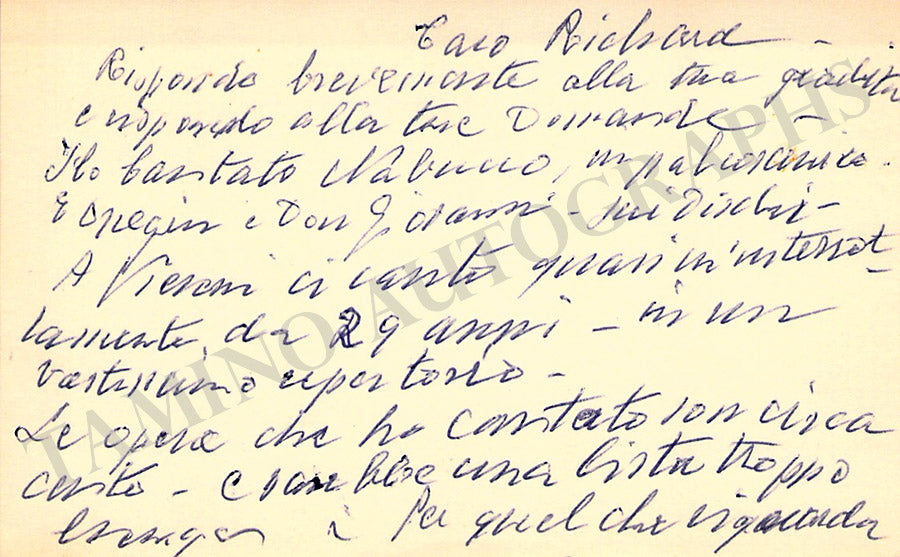 Caro Richard -
Rispondo brevemente alla tua gradita
e rispondo alle tue Domande -
Ho cantato Nabucco, in palcoscenico.
e Don Giovanni - sui Dischi -
A Vienna ci canto quasi ininterrot-
tamente, da 29 anni - in un
vastissimo repertorio -
Le opere che ho cantato son circa
cento - e sarebbe una lista troppo
lunga Per quel che riguarda
TAMINO AUTOGRAPHS